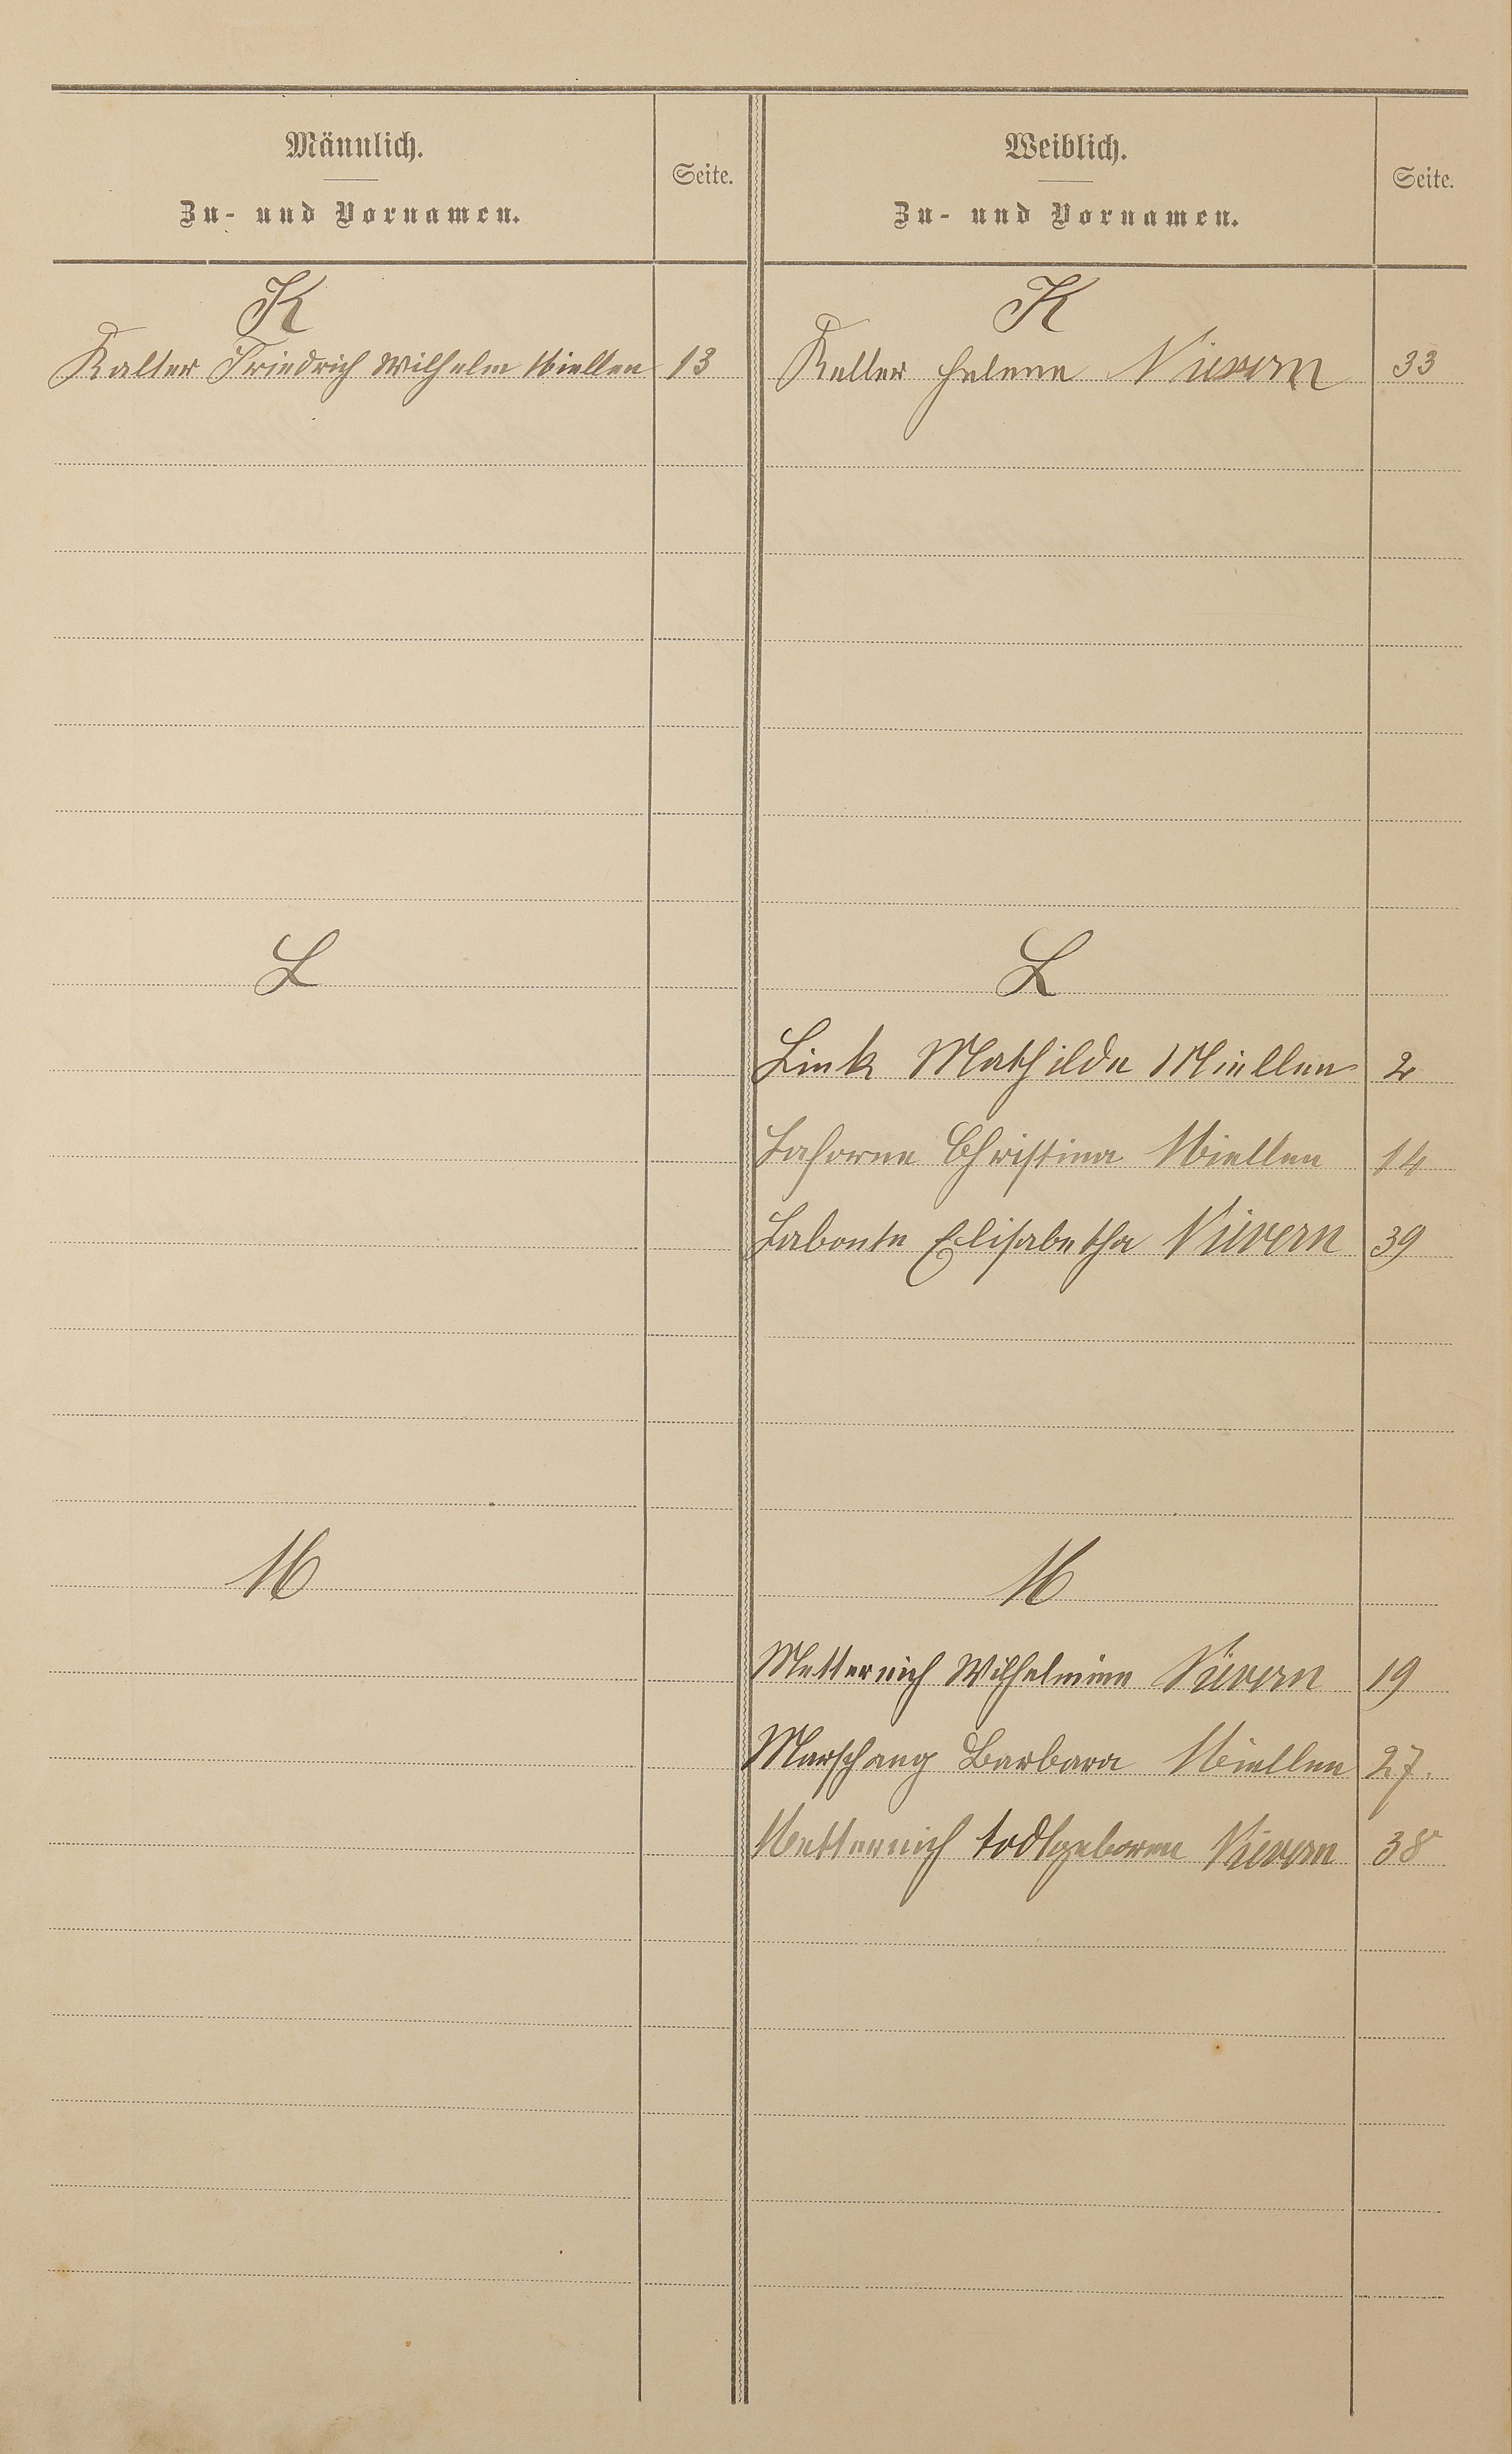 Männlich.
Zu- und Vornamen.
Seite.
Weiblich.
Zu- und Vornamen.
Seite.
K
Kalter Friedrich Wilhelm Miellen 13
K
Keller Helene Nievern 33
L
L
Link Mathilde Miellen 2
Lahorne Christina Miellen 14
Labonte Elisabetha Nievern 39
M
M
Metternich Wilhelmine Nievern 19
Marschang Barbara Miellen 27.
Metternich todtgeboren Nievern 38